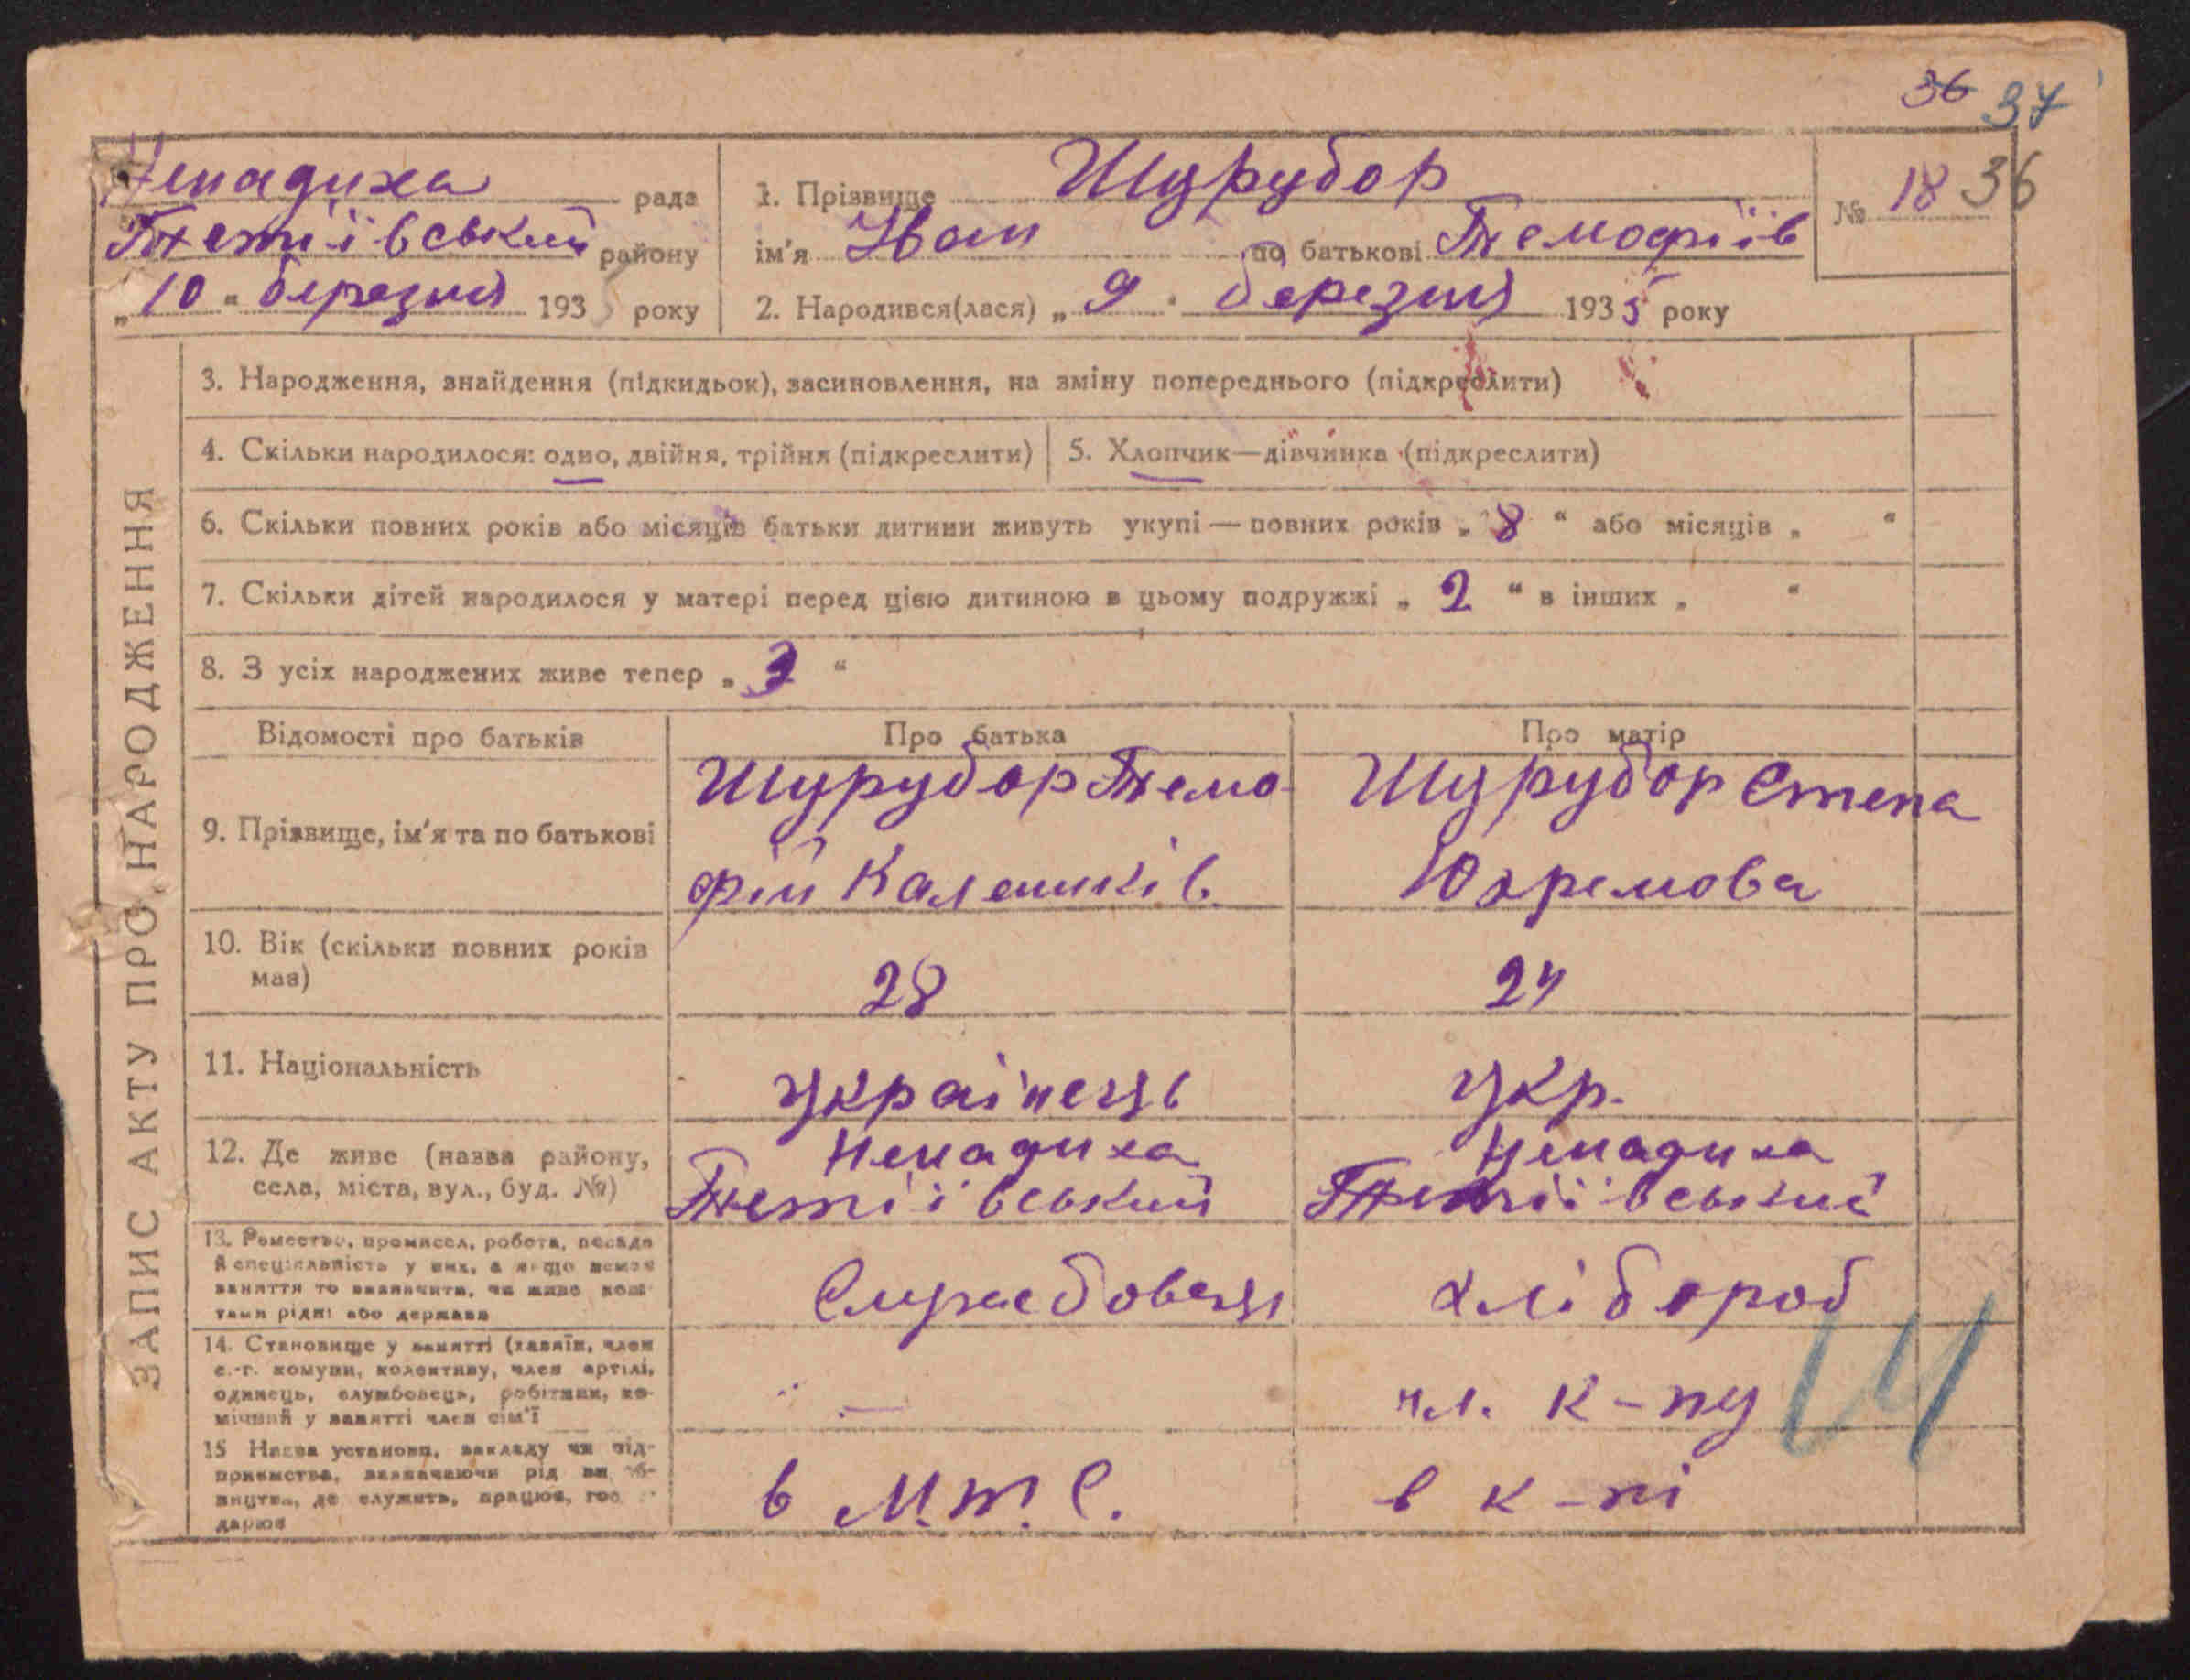 36 37
Ненадиха рада
Тетіївський району
„10“ березня 1935 року
1. Прізвище Шурубор
ім'я Іван по батькові Темофіїв
2. Народився(лася) „9“ березня 1935 року
№ 18 36
ЗАПИС АКТУ ПРО НАРОДЖЕННЯ
3. Народження, знайдення (підкидьок), засиновлення, на зміну попереднього (підкреслити)
4. Скільки народилося: одно, двійня, трійня (підкреслити) 5. Хлопчик—дівчинка (підкреслити)
6. Скільки повних років або місяців батьки дитини живуть укупі — повних років „8“ або місяців „ “
7. Скільки дітей народилося у матері перед цією дитиною в цьому подружжі „2“ в інших „ “
8. З усіх народжених живе тепер „3“
Відомості про батьків Про батька Про матір
9. Прізвище, ім'я та по батькові
Шурубор Темо-
фій Калеників
Шурубор Степа
Юхремова
10. Вік (скільки повних років
має)
28 24
11. Національність
українець укр.
12. Де живе (назва району,
села, міста, вул., буд. №)
Ненадиха
Тетіївський
Ненадиха
Тетіївський
13. Ремество, промисел, робота, посада
й спеціяльність у них, а якщо немає
заняття то зазначити, чи живе кош-
тами рідні або держави
Службовець хлібороб
14. Становище у занятті (хазяїн, член
с.-г. комуни, колективу, член артілі,
одинець, службовець, робітник, по-
мічний у занятті член сім'ї
— чл. к-пу
15 Назва установи, закладу чи під-
приємства, зазначаючи рід ви об-
ництва, де служить, працює, гос
дарює
в М.Т.С. в к-пі